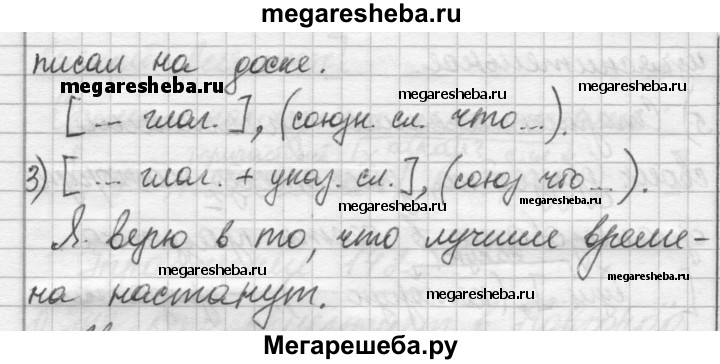 megaresheba.ru
писал на доске.
megaresheba.ru megaresheba.ru
[... глаг.], (союзн. сл. что...).
megaresheba.ru
3) [... глаг. + указ. сл.], (союз что...).
megaresheba.ru
Я верю в то, что лучшие време-
megaresheba.ru
на настанут.
megaresheba.ru
Мегарешеба.ру